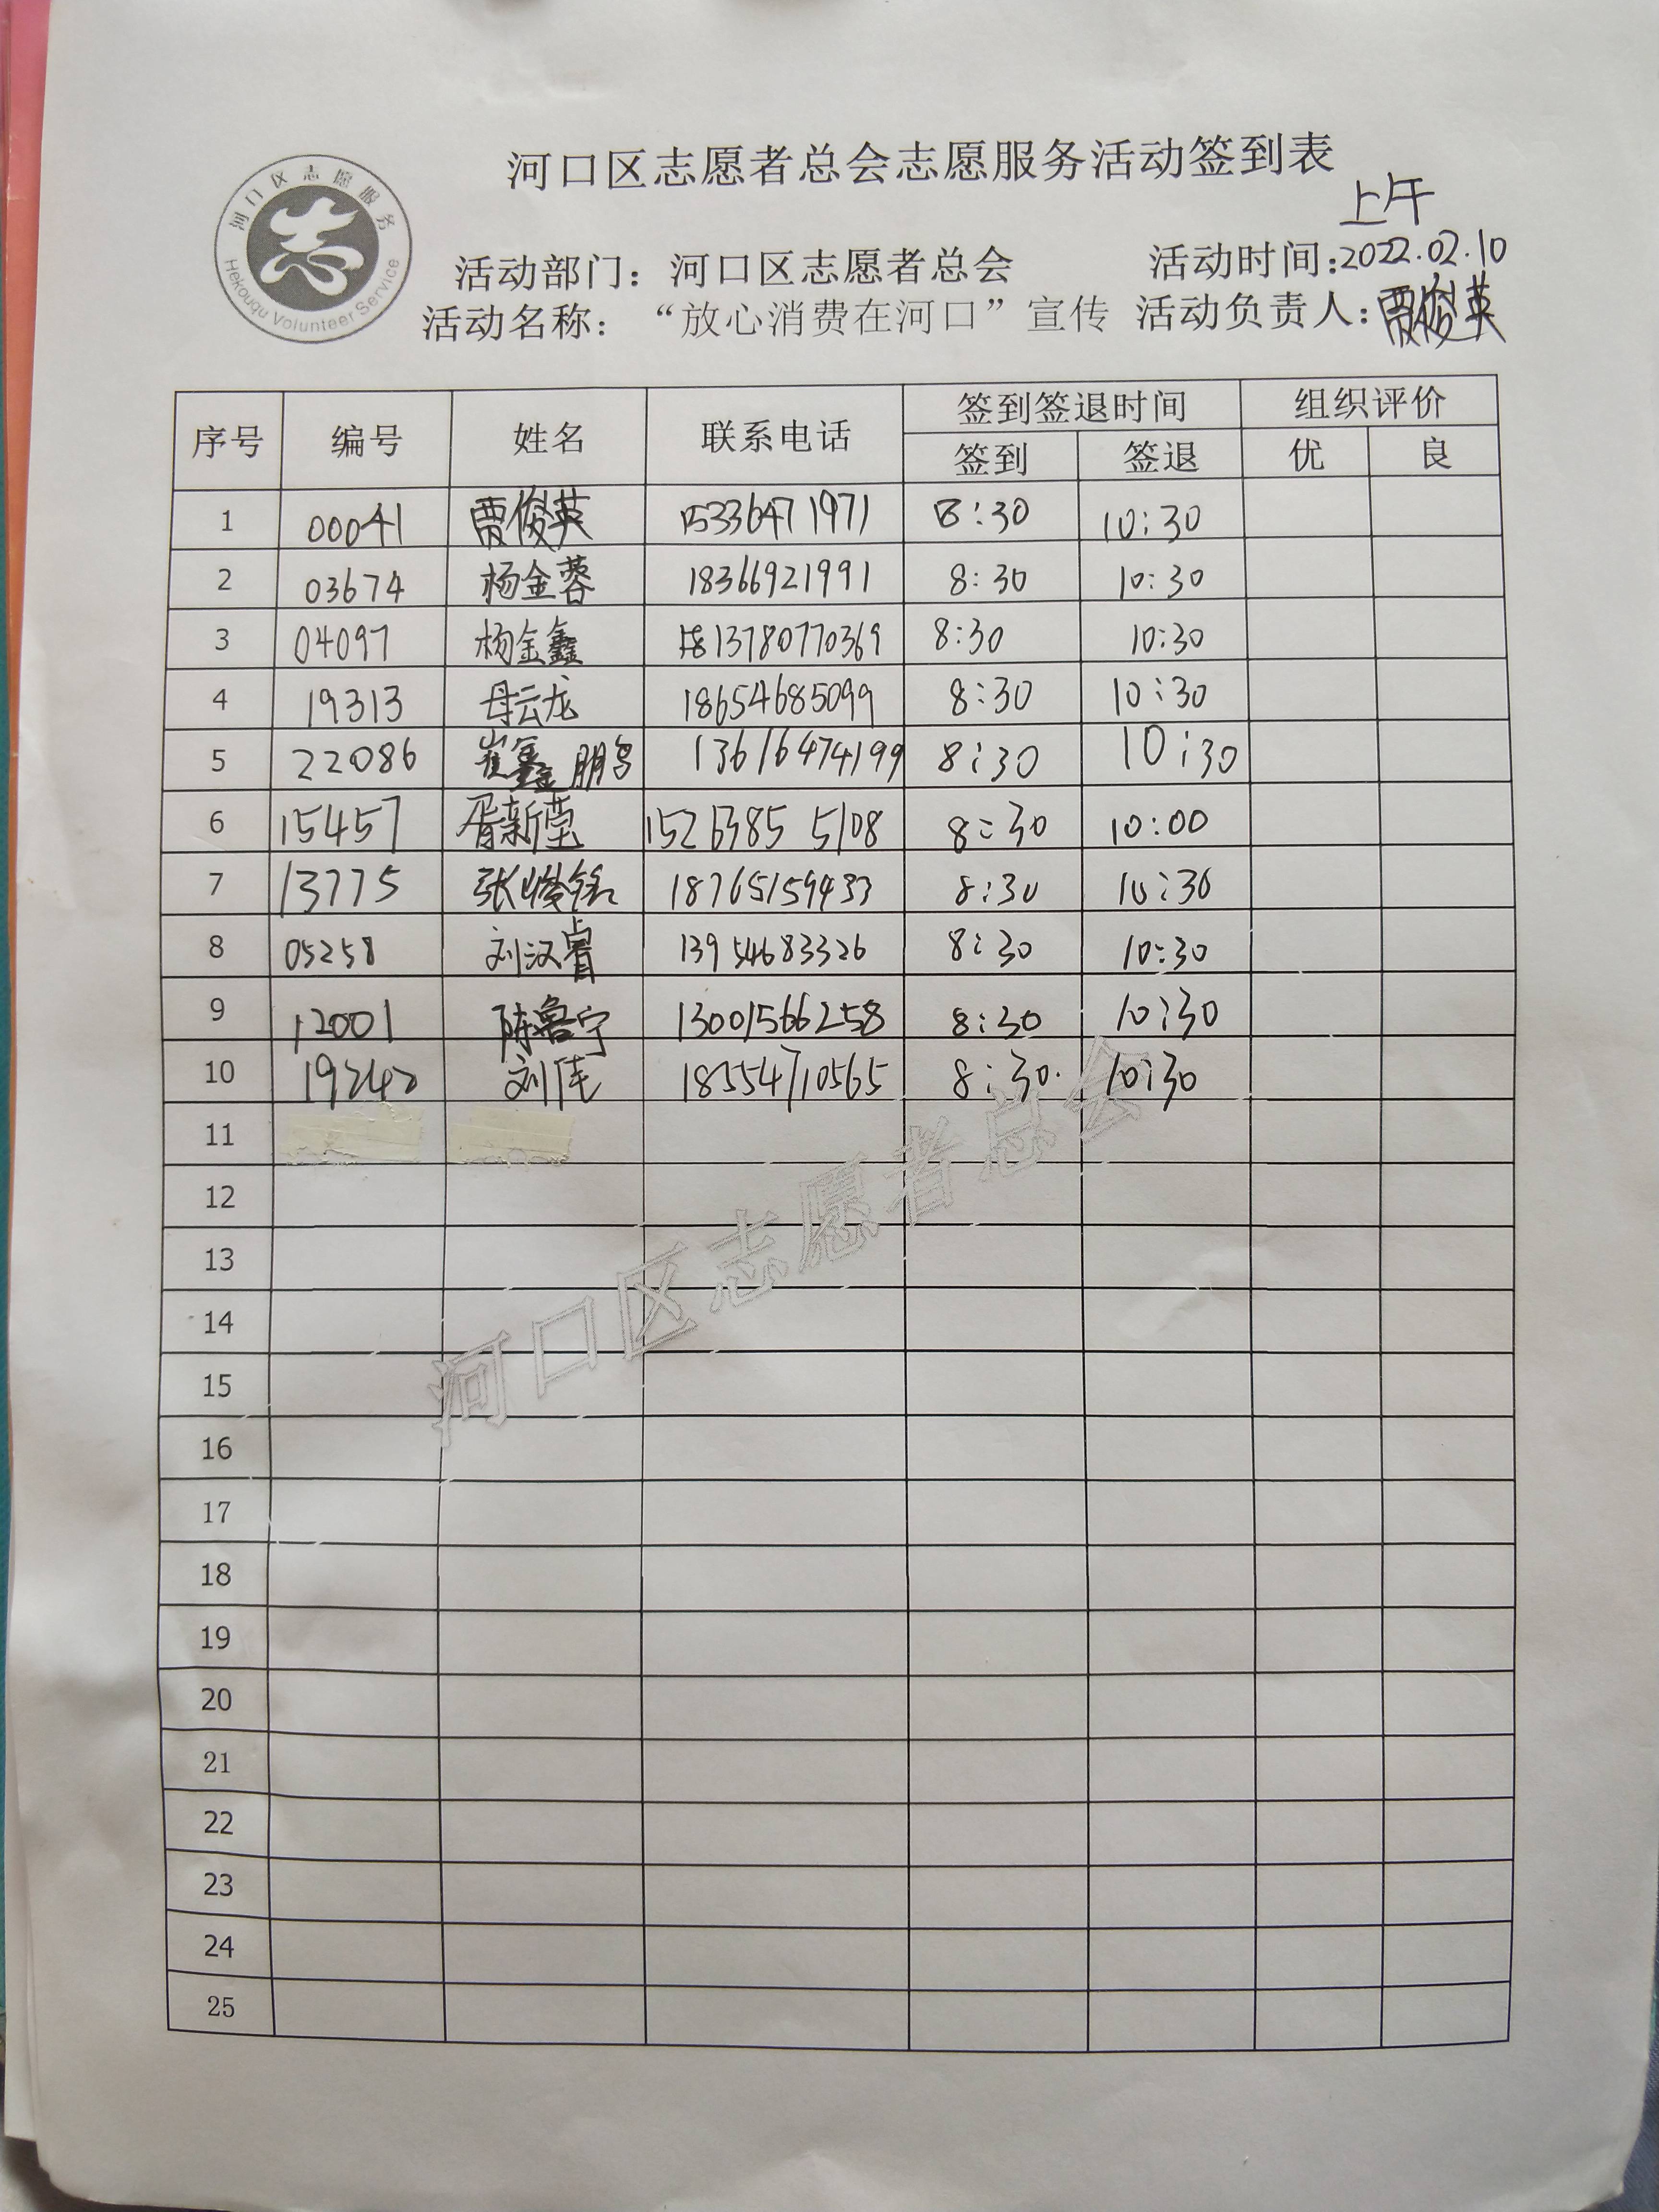 河口区志愿者总会志愿服务活动签到表
上午
河口区志愿服务
Hekouqu Volunteer Service
志
活动部门：河口区志愿者总会 活动时间：2022.02.10
活动名称：“放心消费在河口”宣传 活动负责人：贾俊英
序号 编号 姓名 联系电话 签到签退时间 组织评价
签到 签退 优 良
1 00041 贾俊英 15336471971 8:30 10:30
2 03674 杨金蓉 18366921991 8:30 10:30
3 04097 杨金鑫 13780770369 8:30 10:30
4 19313 母云龙 18654685099 8:30 10:30
5 22086 崔鑫鹏 13616474199 8:30 10:30
6 15457 胥新莹 15263855108 8:30 10:00
7 13775 张 铭 18765159433 8:30 10:30
8 05258 刘汉睿 13954683326 8:30 10:30
9 12001 陈鲁宁 13001566258 8:30 10:30
10 19242 刘佳 18554710565 8:30 10:30
11
12
13
14
15
16
17
18
19
20
21
22
23
24
25
河口区志愿者总会